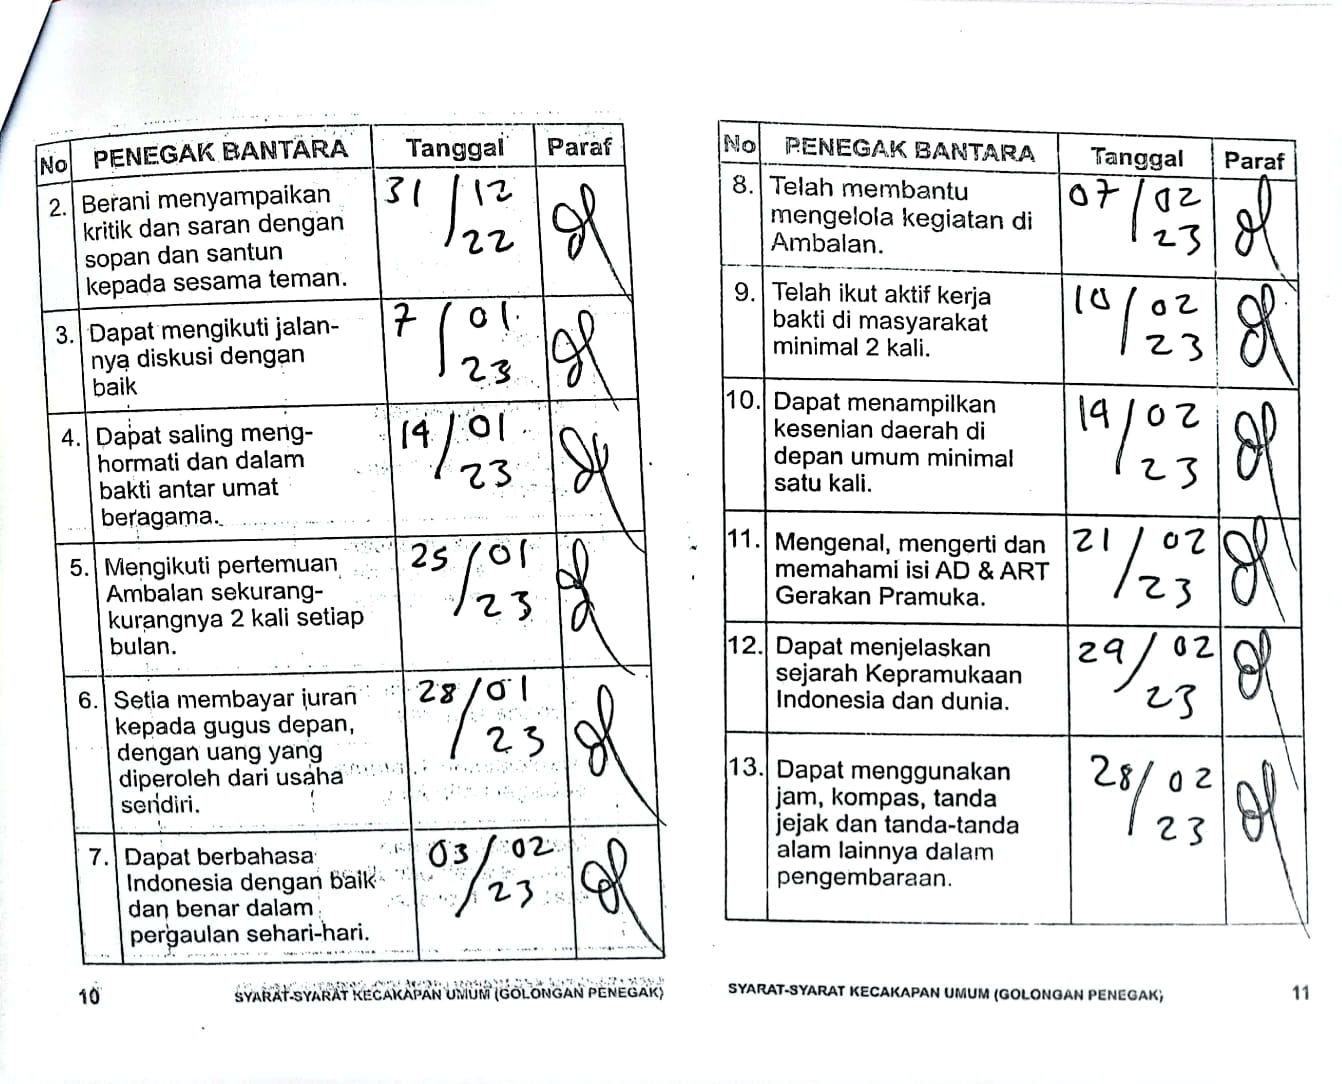 No PENEGAK BANTARA Tanggal Paraf
2. Berani menyampaikan 31/12
kritik dan saran dengan 22
sopan dan santun
kepada sesama teman.
3. Dapat mengikuti jalan- 7/01
nya diskusi dengan 23
baik
4. Dapat saling meng- 14/01
hormati dan dalam 23
bakti antar umat
beragama.
5. Mengikuti pertemuan 25/01
Ambalan sekurang- 23
kurangnya 2 kali setiap
bulan.
6. Setia membayar iuran 28/01
kepada gugus depan, 23
dengan uang yang
diperoleh dari usaha
sendiri.
7. Dapat berbahasa 03/02
Indonesia dengan baik 23
dan benar dalam
pergaulan sehari-hari.
10 SYARAT-SYARAT KECAKAPAN UMUM (GOLONGAN PENEGAK)
No PENEGAK BANTARA Tanggal Paraf
8. Telah membantu 07/02
mengelola kegiatan di 23
Ambalan.
9. Telah ikut aktif kerja 10/02
bakti di masyarakat 23
minimal 2 kali.
10. Dapat menampilkan 19/02
kesenian daerah di 23
depan umum minimal
satu kali.
11. Mengenal, mengerti dan 21/02
memahami isi AD & ART 23
Gerakan Pramuka.
12. Dapat menjelaskan 29/02
sejarah Kepramukaan 23
Indonesia dan dunia.
13. Dapat menggunakan 28/02
jam, kompas, tanda 23
jejak dan tanda-tanda
alam lainnya dalam
pengembaraan.
SYARAT-SYARAT KECAKAPAN UMUM (GOLONGAN PENEGAK) 11